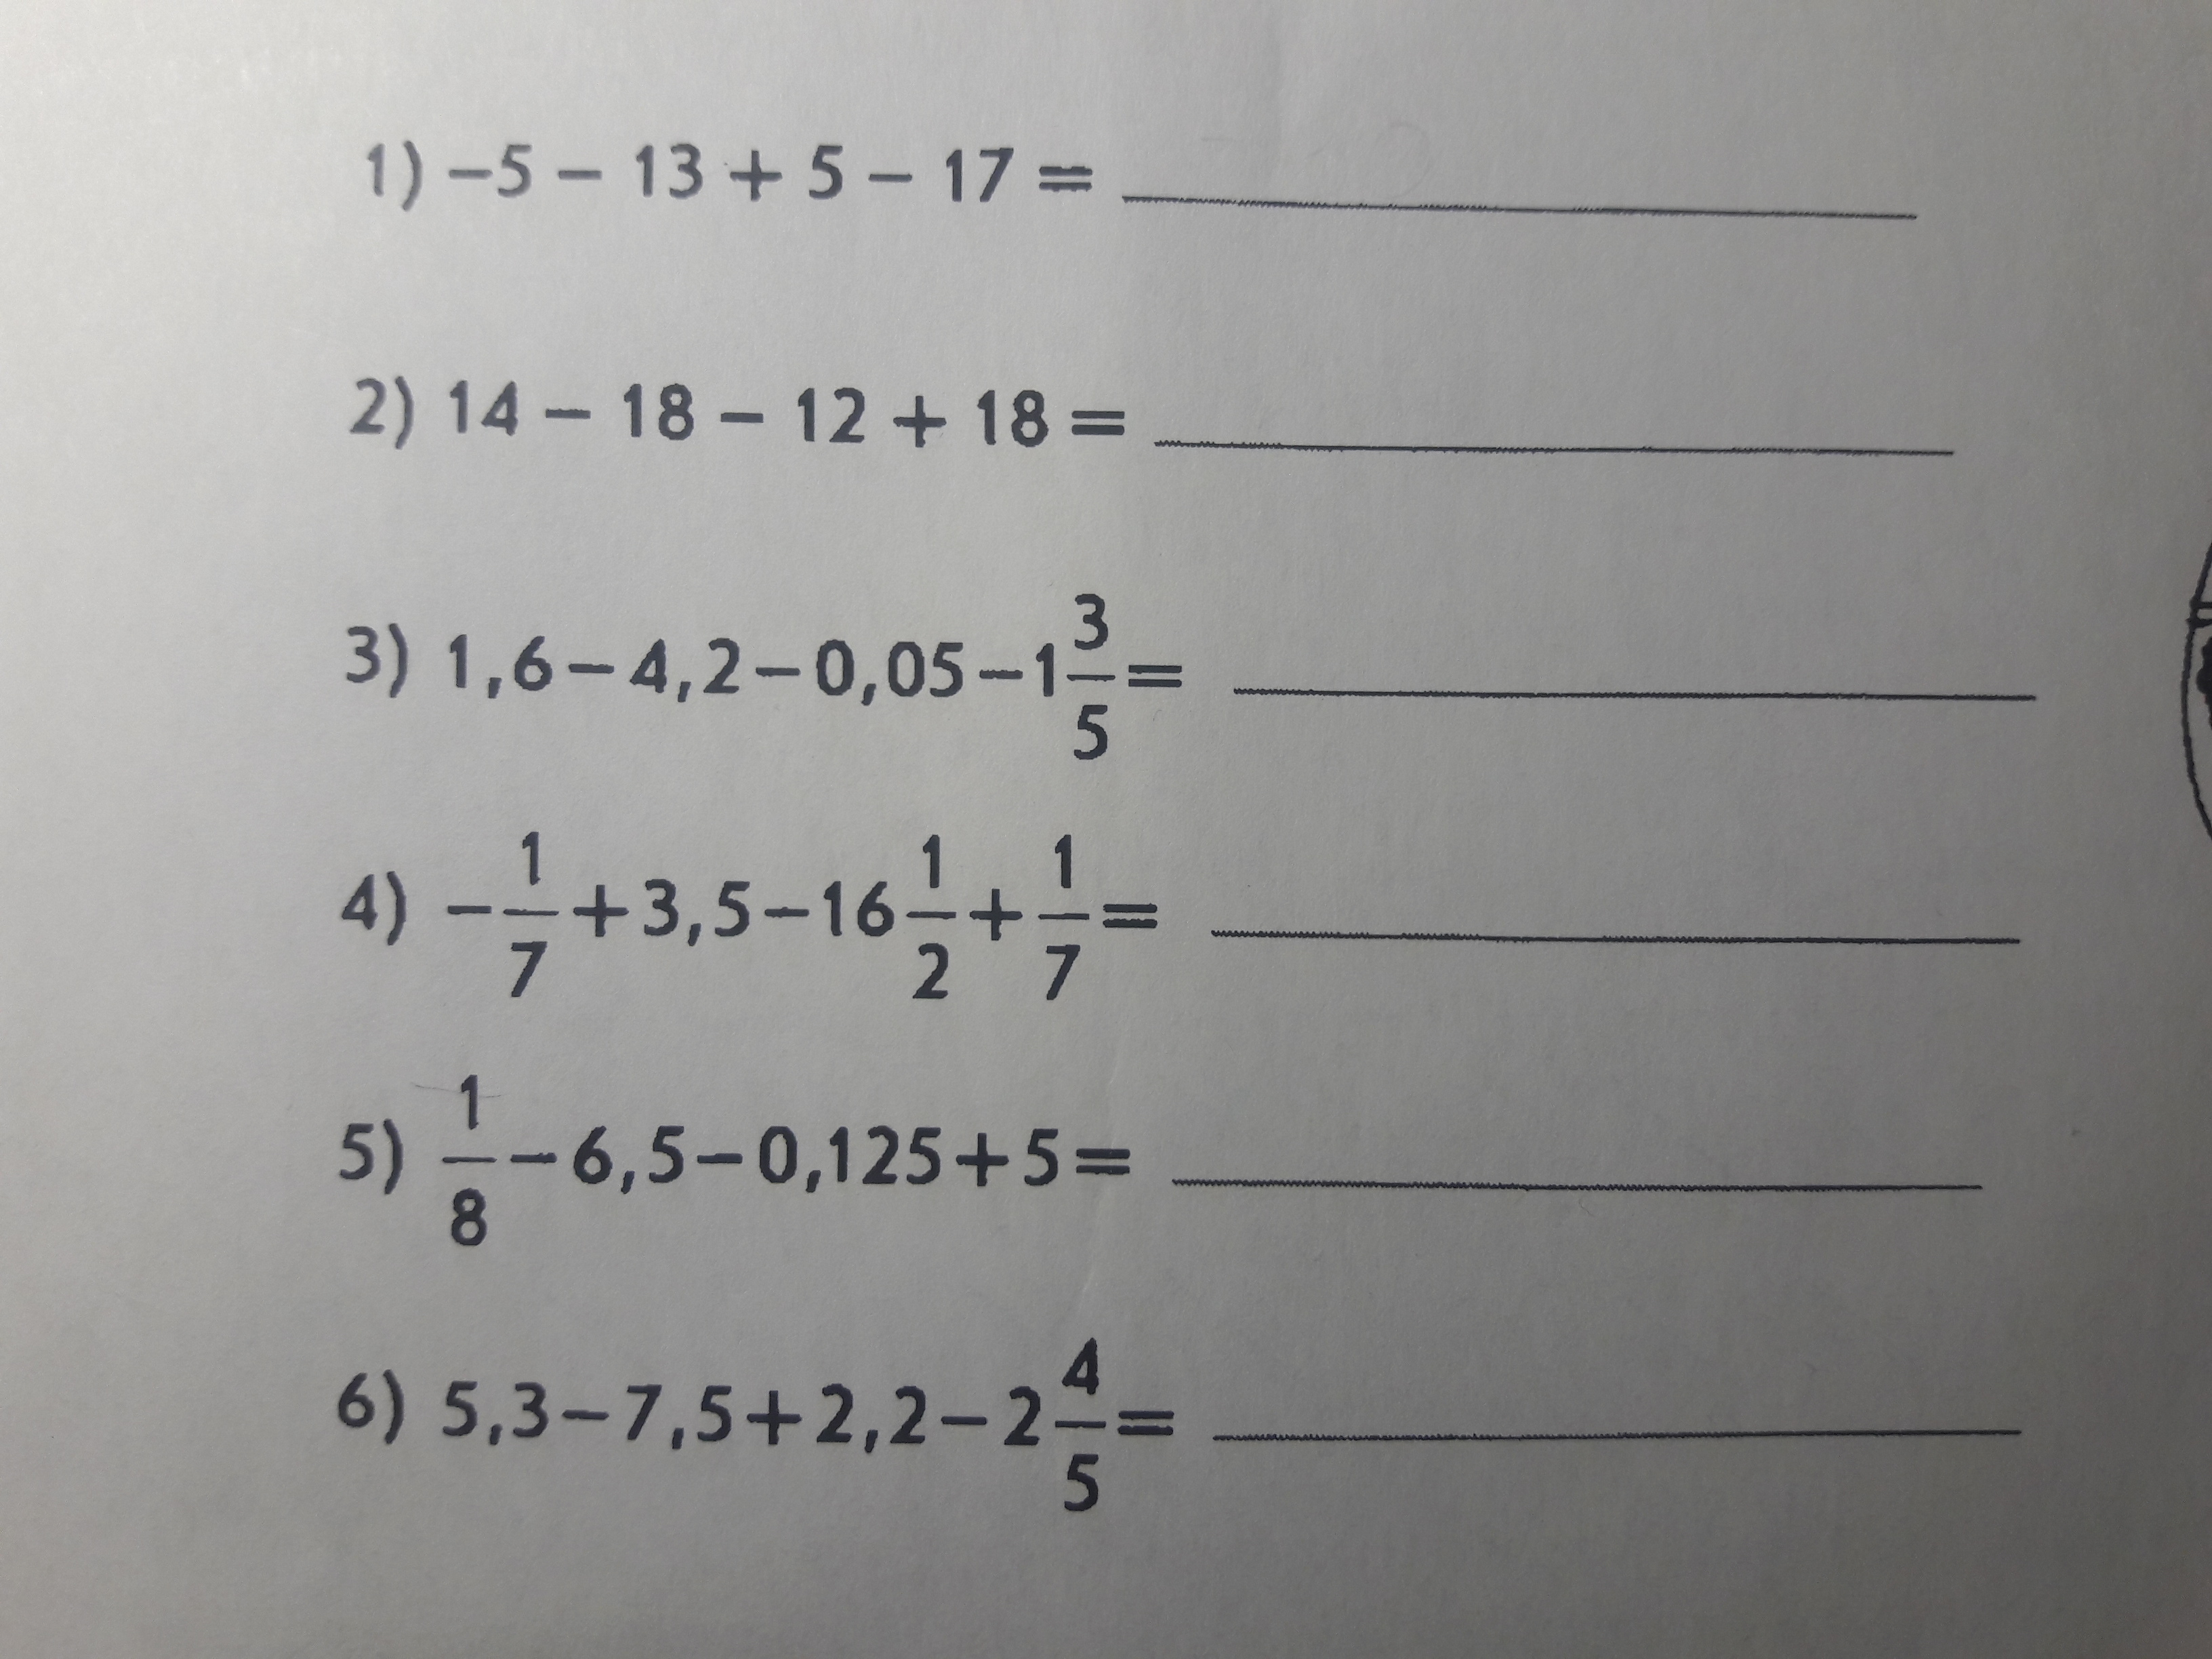 1) −5 − 13 + 5 − 17 = ____________
2) 14 − 18 − 12 + 18 = ____________
3) 1,6 − 4,2 − 0,05 − 1 3/5 = ____________
4) − 1/7 + 3,5 − 16 1/2 + 1/7 = ____________
5) 1/8 − 6,5 − 0,125 + 5 = ____________
6) 5,3 − 7,5 + 2,2 − 2 4/5 = ____________